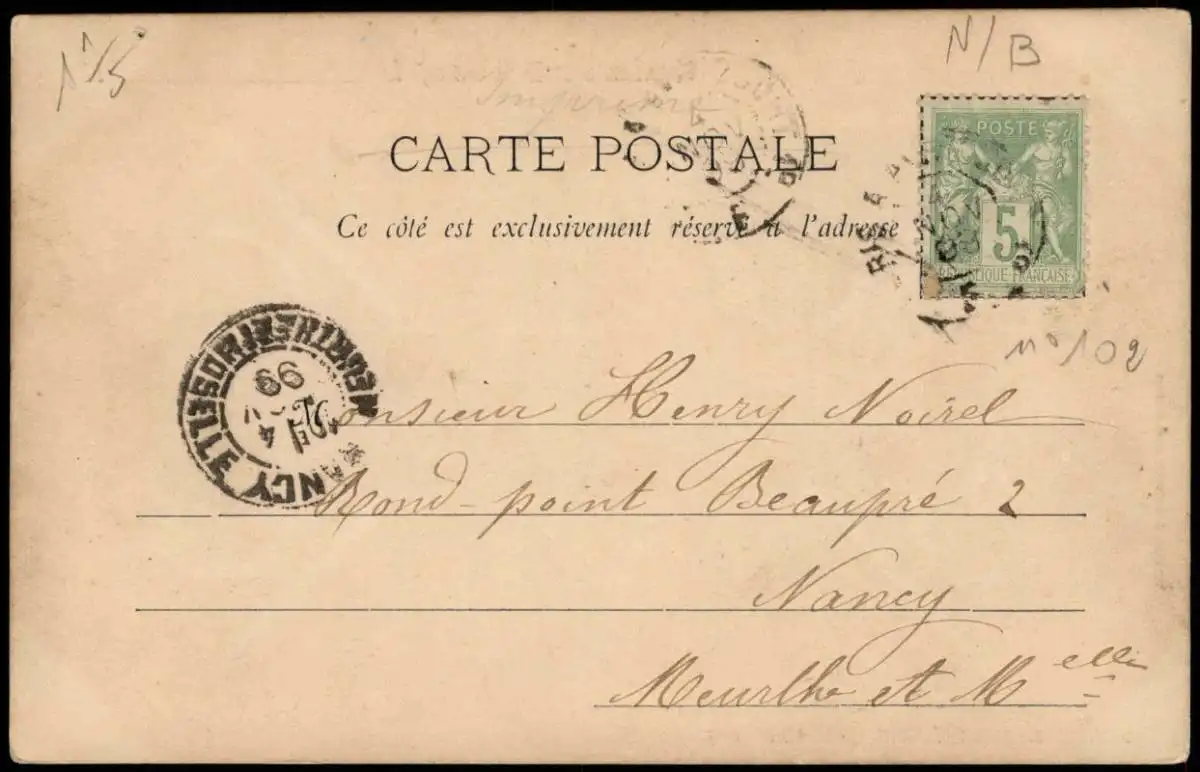 N/B
Imprimé
CARTE POSTALE
Ce côté est exclusivement réservé à l'adresse
POSTE
5
REPUBLIQUE FRANÇAISE
nº 102
NANCY
MEURTHE ET MOSELLE
4
NOV
99
Monsieur Henry Noirel
Rond-point Beaupré 2
Nancy
Meurthe et Melle